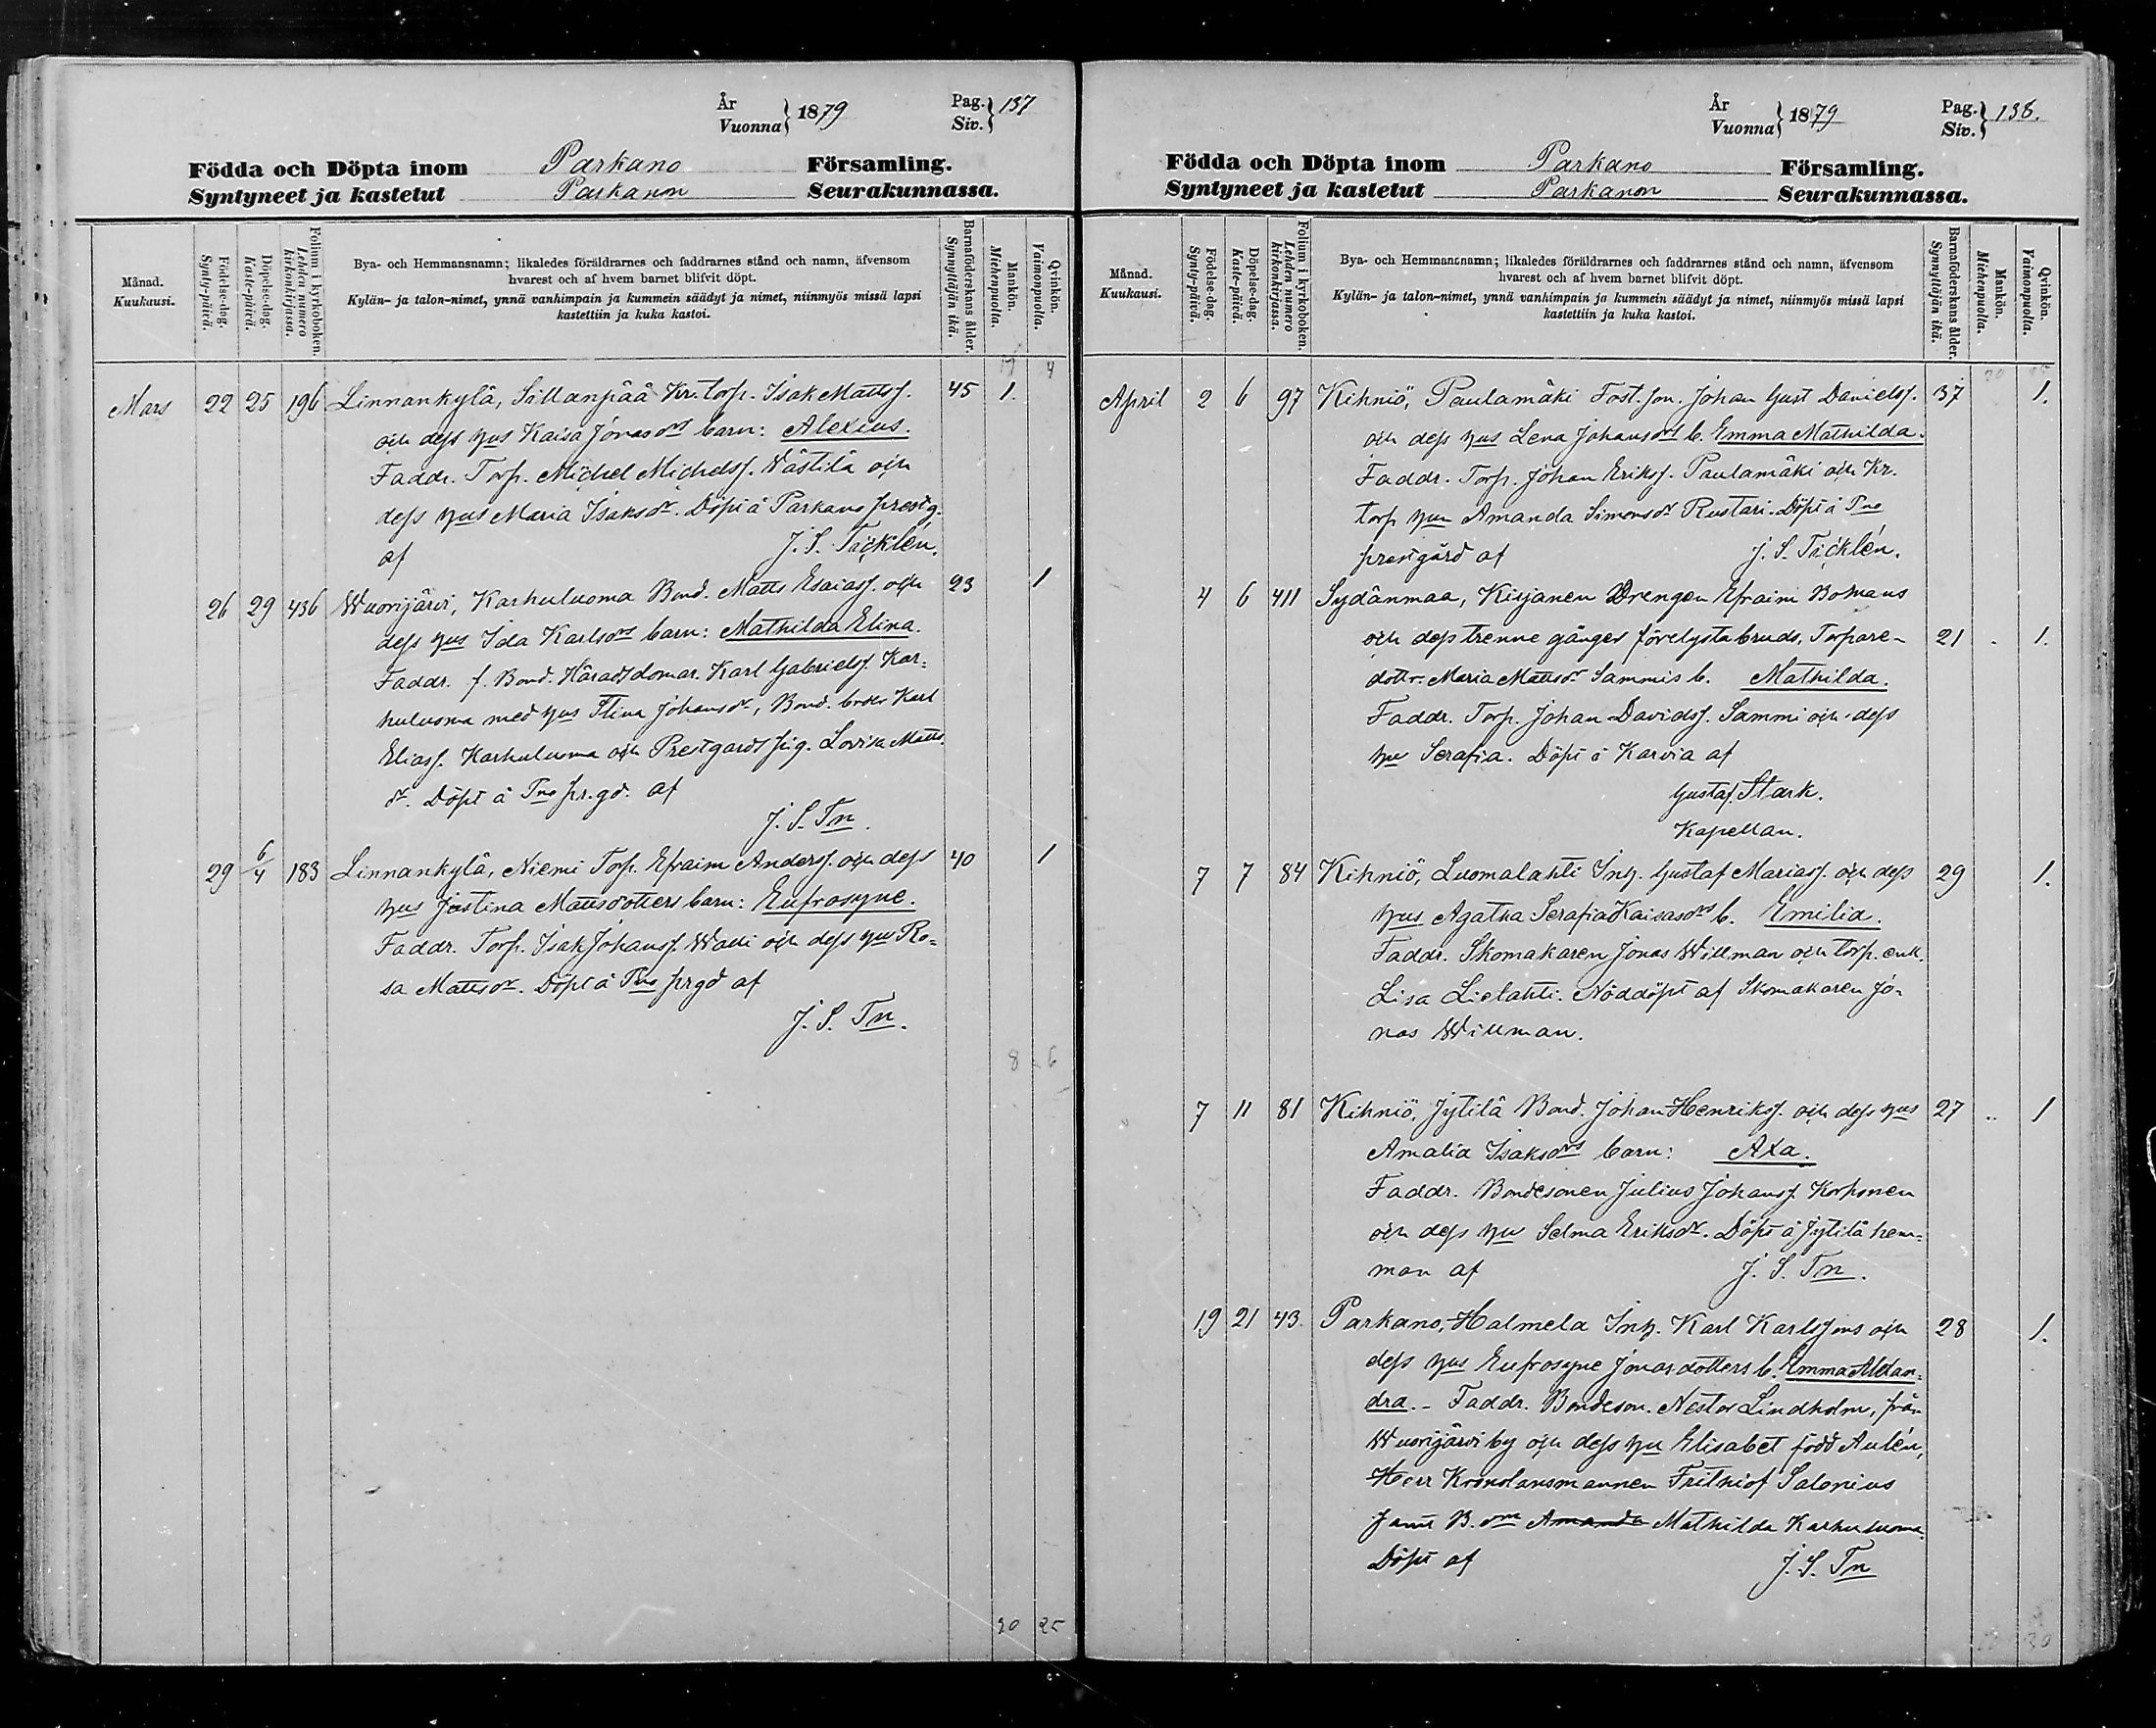 År Vuonna } 1879 Pag. Siv. } 137
Födda och Döpta inom Parkano Församling.
Syntyneet ja kastetut Parkanon Seurakunnassa.
Månad. Kuukausi.
Födelse-dag. Synty-päivä.
Döpelse-dag. Kaste-päivä.
Folium i kyrkoboken. Lehden numero kirkonkirjassa.
Bya- och Hemmansnamn; likaledes föräldrarnes och faddrarnes stånd och namn, äfvensom
hvarest och af hvem barnet blifvit döpt.
Kylän- ja talon-nimet, ynnä vanhimpain ja kummein säädyt ja nimet, niinmyös missä lapsi
kastettiin ja kuka kastoi.
Barnaföderskans ålder. Synnyttäjän ikä.
Mankön. Miehenpuolta.
Qvinkön. Vaimonpuolta.
Mars 22 25 196 Linnankylä, Sillanpää Kr. torp. Isak Mattss. 45 1.
och dess hus Kaisa Jonasdrs barn: Alexius.
Faddr. Torp. Michel Michelss. Wästilä och
dess hus Maria Isaksdr. Döpt å Parkano prestg.
af J. S. Täcklén.
26 29 436 Wuorijärvi, Karhuluoma Bond. Matts Esaiass. och 23 1
dess hus Ida Karlsdrs barn: Mathilda Elina.
Faddr. f. Bond. Häradsdomar. Karl Gabrielss. Kar=
huluoma med hus Stina Johansdr, Bond. broder Karl
Eliass. Karhuluoma och Prestgårds pig. Lovisa Matts
dr. Döpt å Pno pr.gd. af
J. S. Tn.
29 6/4 183 Linnankylä, Niemi Torp. Efraim Anderss. och dess 40 1
hus Justina Mattsdotters barn: Eufrosyne.
Faddr. Torp. Isak Johanss. Walli och dess hus Ro=
sa Mattsdr. Döpt å Pno prgd af
J. S. Tn.
8 6
20 25
År Vuonna } 1879 Pag. Siv. } 138.
Födda och Döpta inom Parkano Församling.
Syntyneet ja kastetut Parkanon Seurakunnassa.
Månad. Kuukausi.
Födelse-dag. Synty-päivä.
Döpelse-dag. Kaste-päivä.
Folium i kyrkoboken. Lehden numero kirkonkirjassa.
Bya- och Hemmansnamn; likaledes föräldrarnes och faddrarnes stånd och namn, äfvensom
hvarest och af hvem barnet blifvit döpt.
Kylän- ja talon-nimet, ynnä vanhimpain ja kummein säädyt ja nimet, niinmyös missä lapsi
kastettiin ja kuka kastoi.
Barnaföderskans ålder. Synnyttäjän ikä.
Mankön. Miehenpuolta.
Qvinkön. Vaimonpuolta.
April 2 6 97 Kihniö, Paulamäki Fost. son. Johan Gust Davidss. 37 1.
och dess hus Lena Johansdrs b. Emma Mathilda.
Faddr. Torp. Johan Erikss. Paulamäki och Kr.
torp hun Amanda Simonsdr Rustari. Döpt å Pno
prestgård af J. S. Täcklén.
4 6 411 Sydänmaa, Kirjanen Drengen Efraim Bomans
och dess trenne gånger förelysta bruds, Torpare- 21 1.
dottr. Maria Mattsdr Sammis b. Mathilda.
Faddr. Torp. Johan Davidss. Sammi och dess
hu Serafia. Döpt i Karvia af
Gustaf Stark.
Kapellan.
7 7 84 Kihniö, Luomalahti Inh. Gustaf Mariass. och dess 29 1.
hus Agatha Serafia Kaisasdrs b. Emilia.
Faddr. Skomakaren Jonas Willman och torp. enk.
Lisa Lielahti. Nöddöpt af Skomakaren Jo=
nas Willman.
7 11 81 Kihniö, Jytilä Bond. Johan Henrikss. och dess hus 27 1
Amalia Isaksdrs barn: Axa.
Faddr. Bondesonen Julius Johanss. Korhonen
och dess hu Selma Eriksdr. Döpt å Jytilä hem=
man af J. S. Tn.
19 21 43. Parkano, Halmela Inh. Karl Karlssons och 28 1.
dess hus Eufrosyne Jonasdotters b. Emma Alexan=
dra. - Faddr. Bondeson. Nestor Lindholm, från
Wuorijärvi by och dess hu Elisabet född Aulén,
Herr Kronolänsmannen Frithiof Salonius
samt B. Amanda Mathilda Karhuluoma.
Döpt af J. S. Tn
30